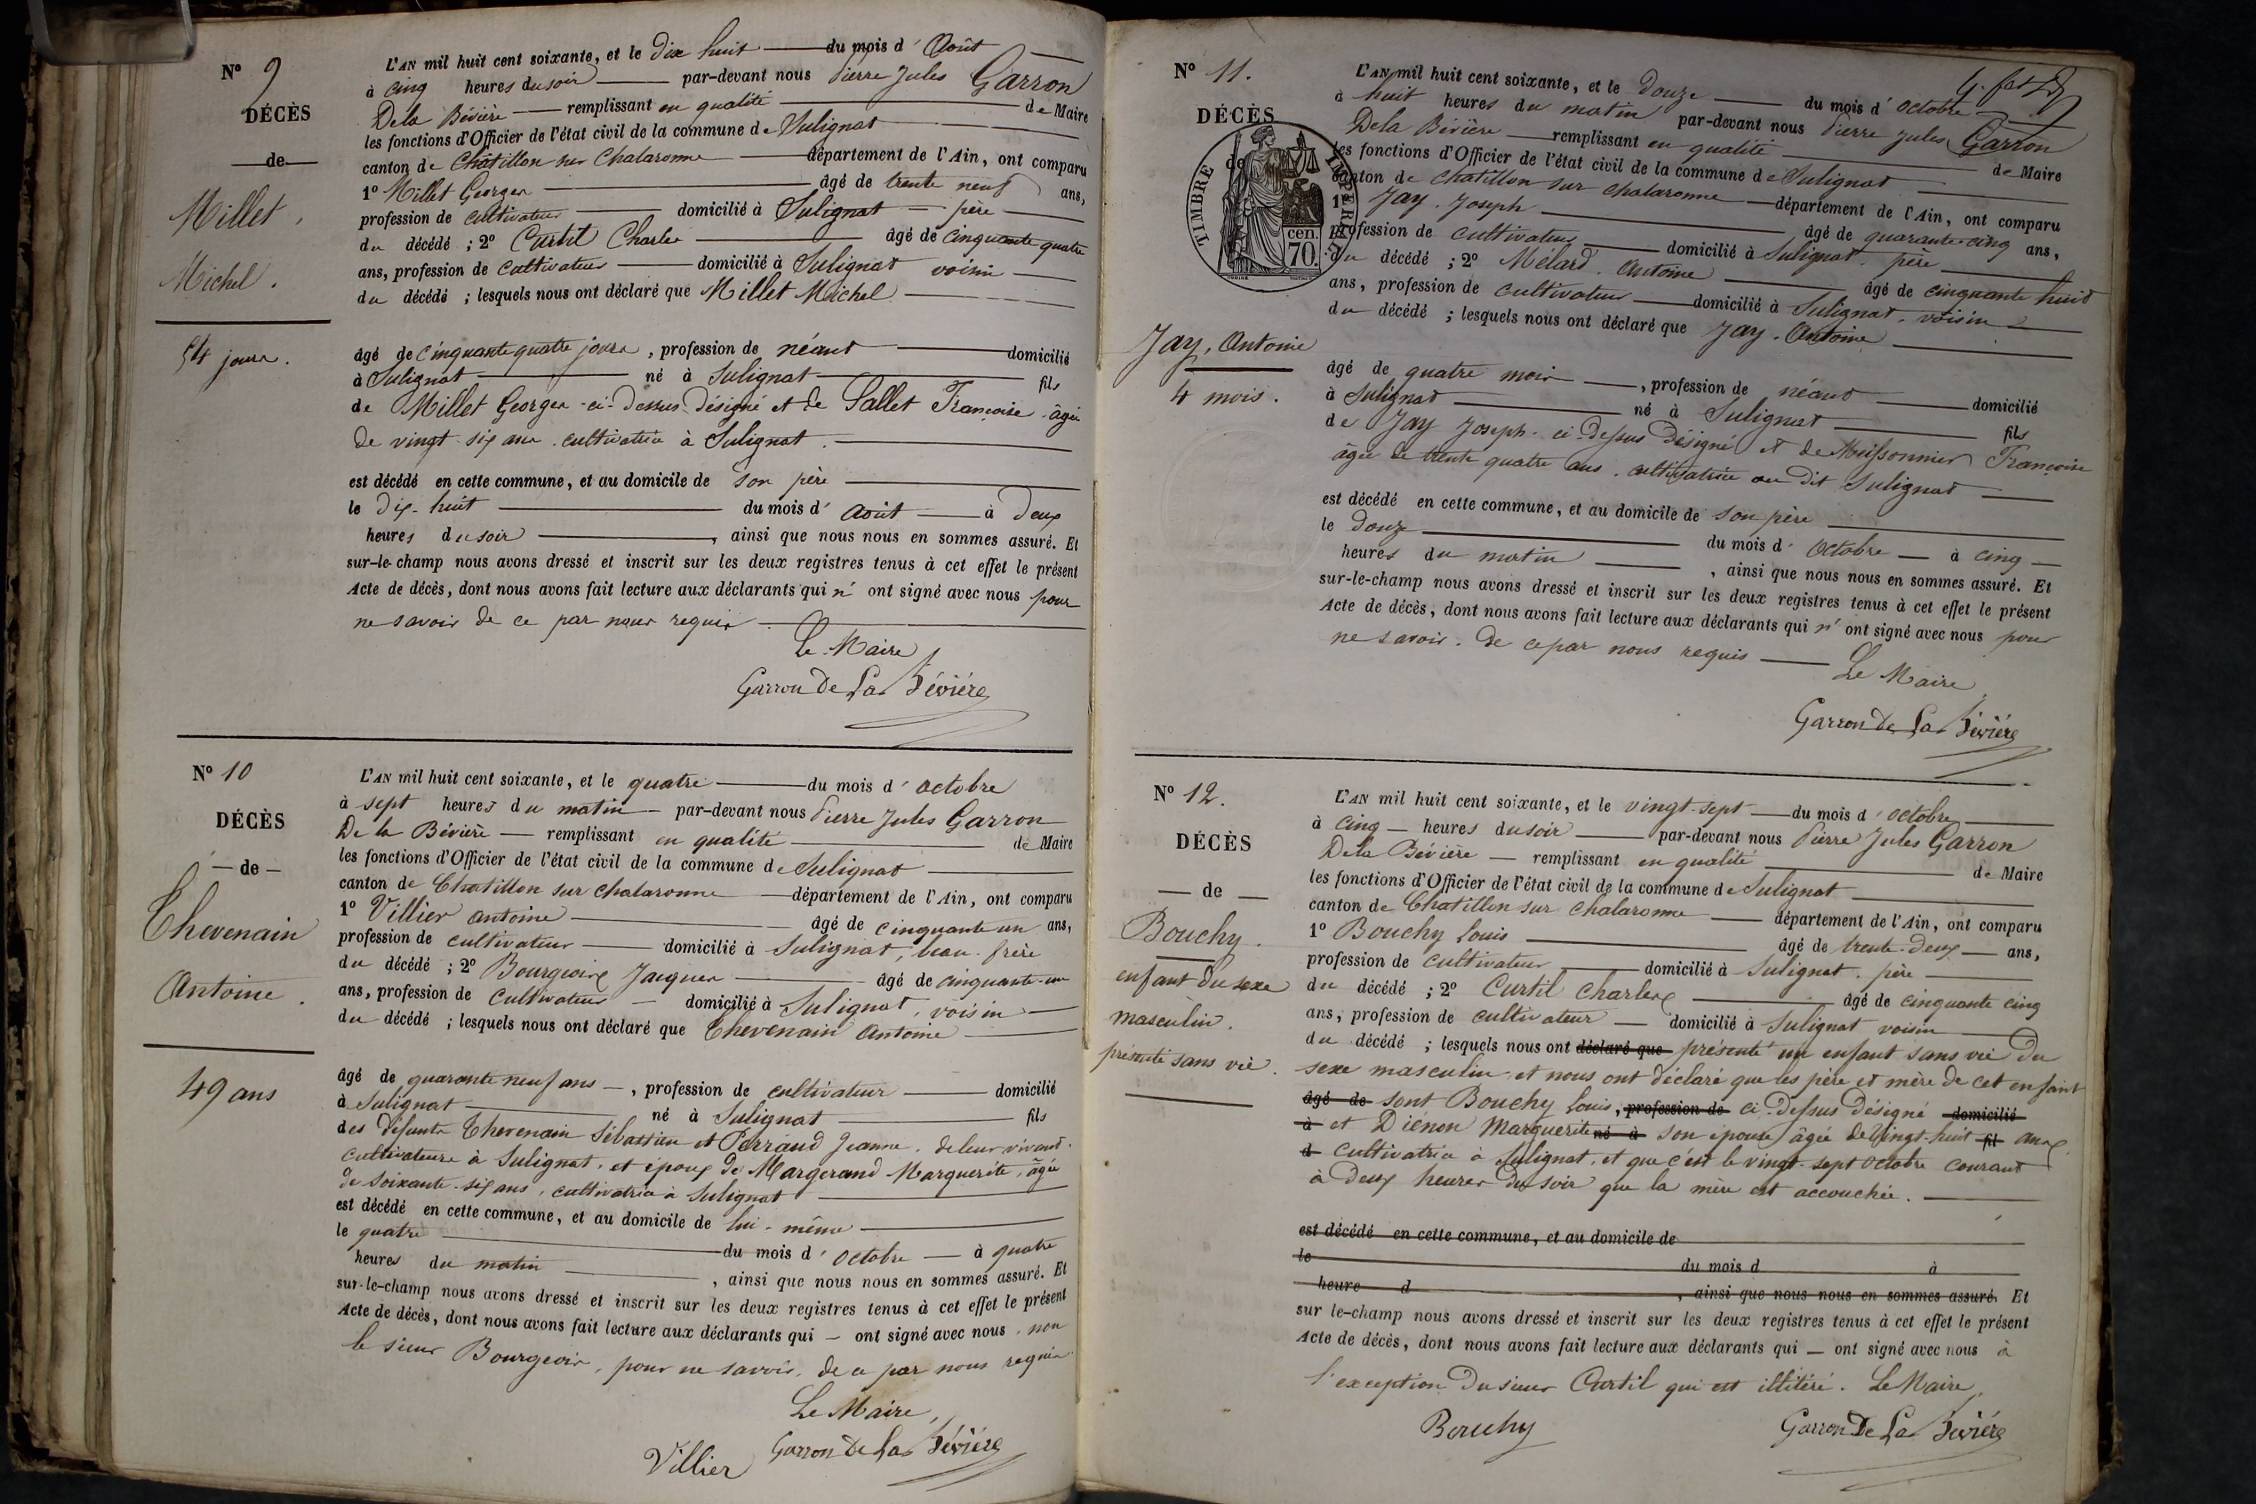 N° 9
DÉCÈS
de
Millet,
Michel.
54 jours.
L'AN mil huit cent soixante, et le dix huit du mois d'Août
à cinq heures du soir par-devant nous Pierre Jules Garron
De la Bévière remplissant en qualité de Maire
les fonctions d'Officier de l'état civil de la commune de Sulignat
canton de Châtillon sur Chalaronne département de l'Ain, ont comparu
1° Millet Georges âgé de trente neuf ans,
profession de cultivateur domicilié à Sulignat père
du décédé ; 2° Curtil Charles âgé de cinquante quatre
ans, profession de cultivateur domicilié à Sulignat voisin
du décédé ; lesquels nous ont déclaré que Millet Michel
âgé de cinquante quatre jours, profession de néant domicilié
à Sulignat né à Sulignat fils
de Millet Georges ci-dessus désigné et de Sallet Françoise âgée
de vingt-six ans cultivatrice à Sulignat.
est décédé en cette commune, et au domicile de son père
le dix-huit du mois d'août à deux
heures du soir, ainsi que nous nous en sommes assuré. Et
sur-le-champ nous avons dressé et inscrit sur les deux registres tenus à cet effet le présent
Acte de décès, dont nous avons fait lecture aux déclarants qui n'ont signé avec nous pour
ne savoir de ce par nous requis
Le Maire,
Garron De La Bévière
N° 10
DÉCÈS
— de —
Thevenain
Antoine.
49 ans
L'AN mil huit cent soixante, et le quatre du mois d'octobre
à sept heures du matin par-devant nous Pierre Jules Garron
De la Bévière remplissant en qualité de Maire
les fonctions d'Officier de l'état civil de la commune de Sulignat
canton de Chatillon sur Chalaronne département de l'Ain, ont comparu
1° Villier antoine âgé de cinquante un ans,
profession de cultivateur domicilié à Sulignat, beau-frère
du décédé ; 2° Bourgeois Jacques âgé de cinquante-un
ans, profession de cultivateur domicilié à Sulignat, voisin
du décédé ; lesquels nous ont déclaré que Thevenain antoine
âgé de quarante neuf ans, profession de cultivateur domicilié
à Sulignat né à Sulignat fils
des défunts Thevenain Sébastien et Perraud Jeanne, de leur vivant
cultivateurs à Sulignat, et époux de Margerand Marguerite, âgée
de soixante-six ans, cultivatrice à Sulignat
est décédé en cette commune, et au domicile de lui-même
le quatre du mois d'octobre à quatre
heures du matin, ainsi que nous nous en sommes assuré. Et
sur-le-champ nous avons dressé et inscrit sur les deux registres tenus à cet effet le présent
Acte de décès, dont nous avons fait lecture aux déclarants qui — ont signé avec nous, non
le sieur Bourgeois, pour ne savoir, de ce par nous requis.
Le Maire,
Villier Garron De La Bévière
N° 11.
DÉCÈS
de
TIMBRE IMPÉRIAL
70 cen.
Jay, Antoine
4 mois.
L'AN mil huit cent soixante, et le douze du mois d'octobre
à huit heures du matin par-devant nous Pierre Jules Garron
De la Bévière remplissant en qualité de Maire
les fonctions d'Officier de l'état civil de la commune de Sulignat
canton de Chatillon sur Chalaronne département de l'Ain, ont comparu
1° Jay. Joseph âgé de quarante-cinq ans,
profession de cultivateur domicilié à Sulignat. père
du décédé ; 2° Mélard. Antoine âgé de cinquante huit
ans, profession de cultivateur domicilié à Sulignat. voisin
du décédé ; lesquels nous ont déclaré que Jay. Antoine
âgé de quatre mois, profession de néant domicilié
à Sulignat né à Sulignat fils
de Jay Joseph. ci-dessus désigné et de Muissonnier Françoise
âgée de trente quatre ans. cultivatrice au dit Sulignat
est décédé en cette commune, et au domicile de son père
le douze du mois d'octobre à cinq
heures du matin, ainsi que nous nous en sommes assuré. Et
sur-le-champ nous avons dressé et inscrit sur les deux registres tenus à cet effet le présent
Acte de décès, dont nous avons fait lecture aux déclarants qui n'ont signé avec nous pour
ne savoir. de ce par nous requis
Le Maire,
Garron De La Bévière
N° 12.
DÉCÈS
— de —
Bouchy.
enfant du sexe
masculin.
présenté sans vie.
L'AN mil huit cent soixante, et le vingt-sept du mois d'octobre
à cinq heures du soir par-devant nous Pierre Jules Garron
De la Bévière remplissant en qualité de Maire
les fonctions d'Officier de l'état civil de la commune de Sulignat
canton de Chatillon sur Chalaronne département de l'Ain, ont comparu
1° Bouchy Louis âgé de trente-deux ans,
profession de cultivateur domicilié à Sulignat. père
du décédé ; 2° Curtil Charles âgé de cinquante cinq
ans, profession de cultivateur domicilié à Sulignat voisin
du décédé ; lesquels nous ont déclaré que présenté un enfant sans vie du
sexe masculin et nous ont déclaré que les père et mère de cet enfant
âgé de sont Bouchy Louis, profession de ci-dessus désigné domicilié
à et Diénon Marguerite né à son épouse âgée de vingt-huit fil ans
d cultivatrice à Sulignat, et que c'est le vingt-sept octobre courant
à deux heures du soir que la mère est accouchée.
est décédé en cette commune, et au domicile de
le du mois d à
heure d, ainsi que nous nous en sommes assuré. Et
sur le-champ nous avons dressé et inscrit sur les deux registres tenus à cet effet le présent
Acte de décès, dont nous avons fait lecture aux déclarants qui — ont signé avec nous à
l'exception du sieur Curtil qui est illitéré. Le Maire,
Bouchy Garron De La Bévière